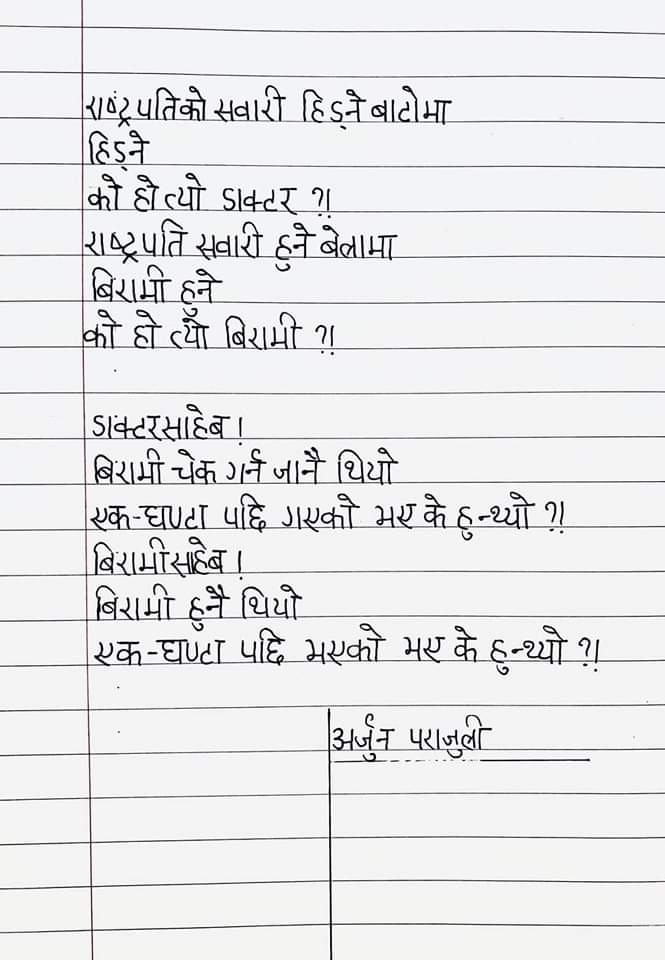 राष्ट्रपतिको सवारी हिड्ने बाटोमा
हिड्ने
को हो त्यो डाक्टर ?!
राष्ट्रपति सवारी हुने बेलामा
बिरामी हुने
को हो त्यो बिरामी ?!
डाक्टरसाहेब !
बिरामी चेक गर्न जानै थियो
एक-घण्टा पछि गएको भए के हुन्थ्यो ?!
बिरामीसाहेब !
बिरामी हुनै थियो
एक-घण्टा पछि भएको भए के हुन्थ्यो ?!
अर्जुन पराजुली